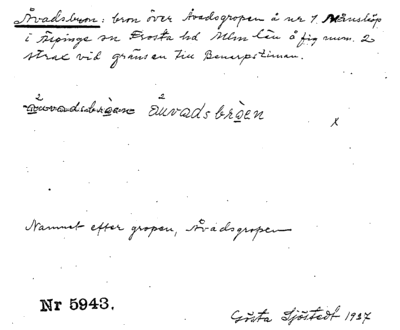 Åvadsbron: bron över Åvadsgropen å nr 1 Månstorp
i Äspinge sn Frosta hd Mlm län å fig num. 2
strax vid gränsen till
åuvadsbròen åuvadsbròen
x
Namnet efter gropen, Åvadsgropen
Nr 5943.
Gösta Sjöstedt 1937